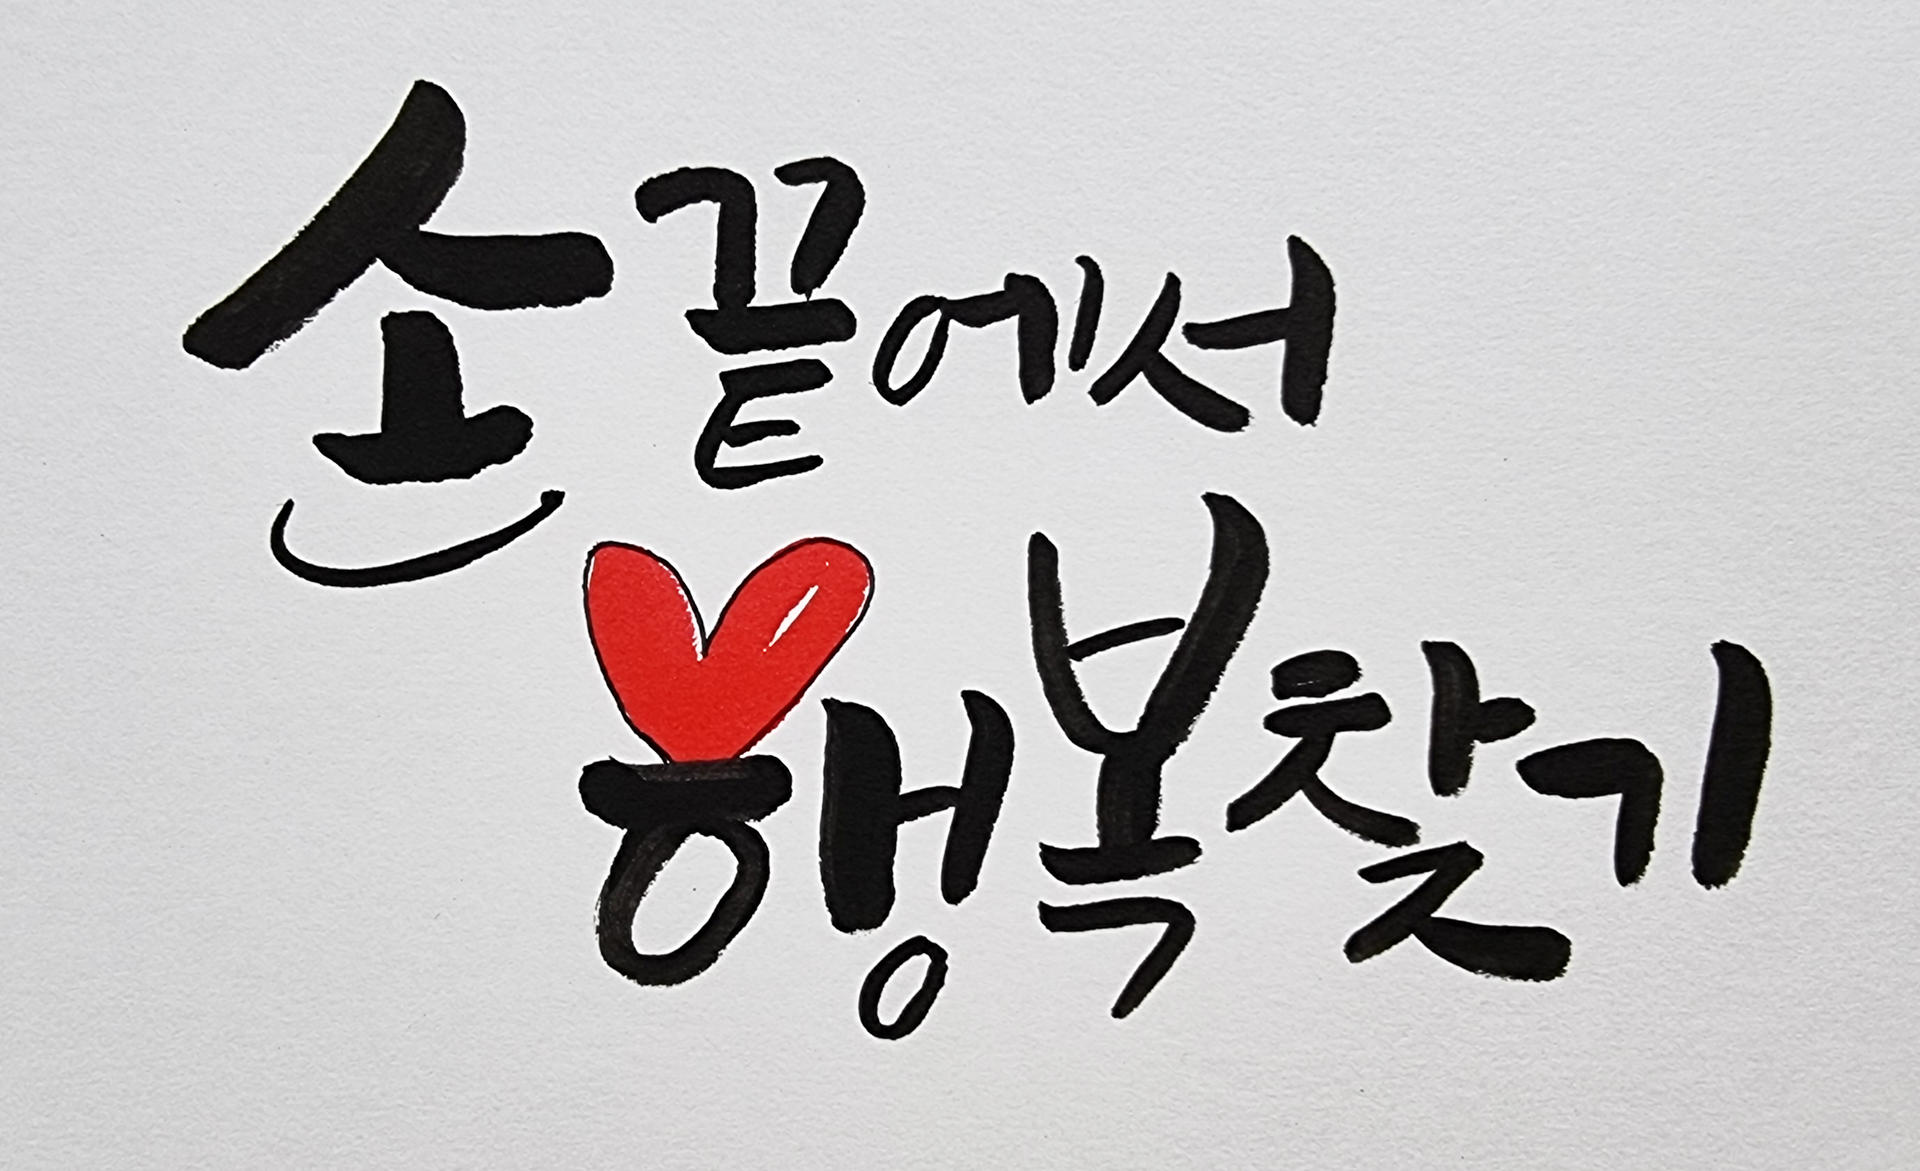 손끝에서
행복찾기